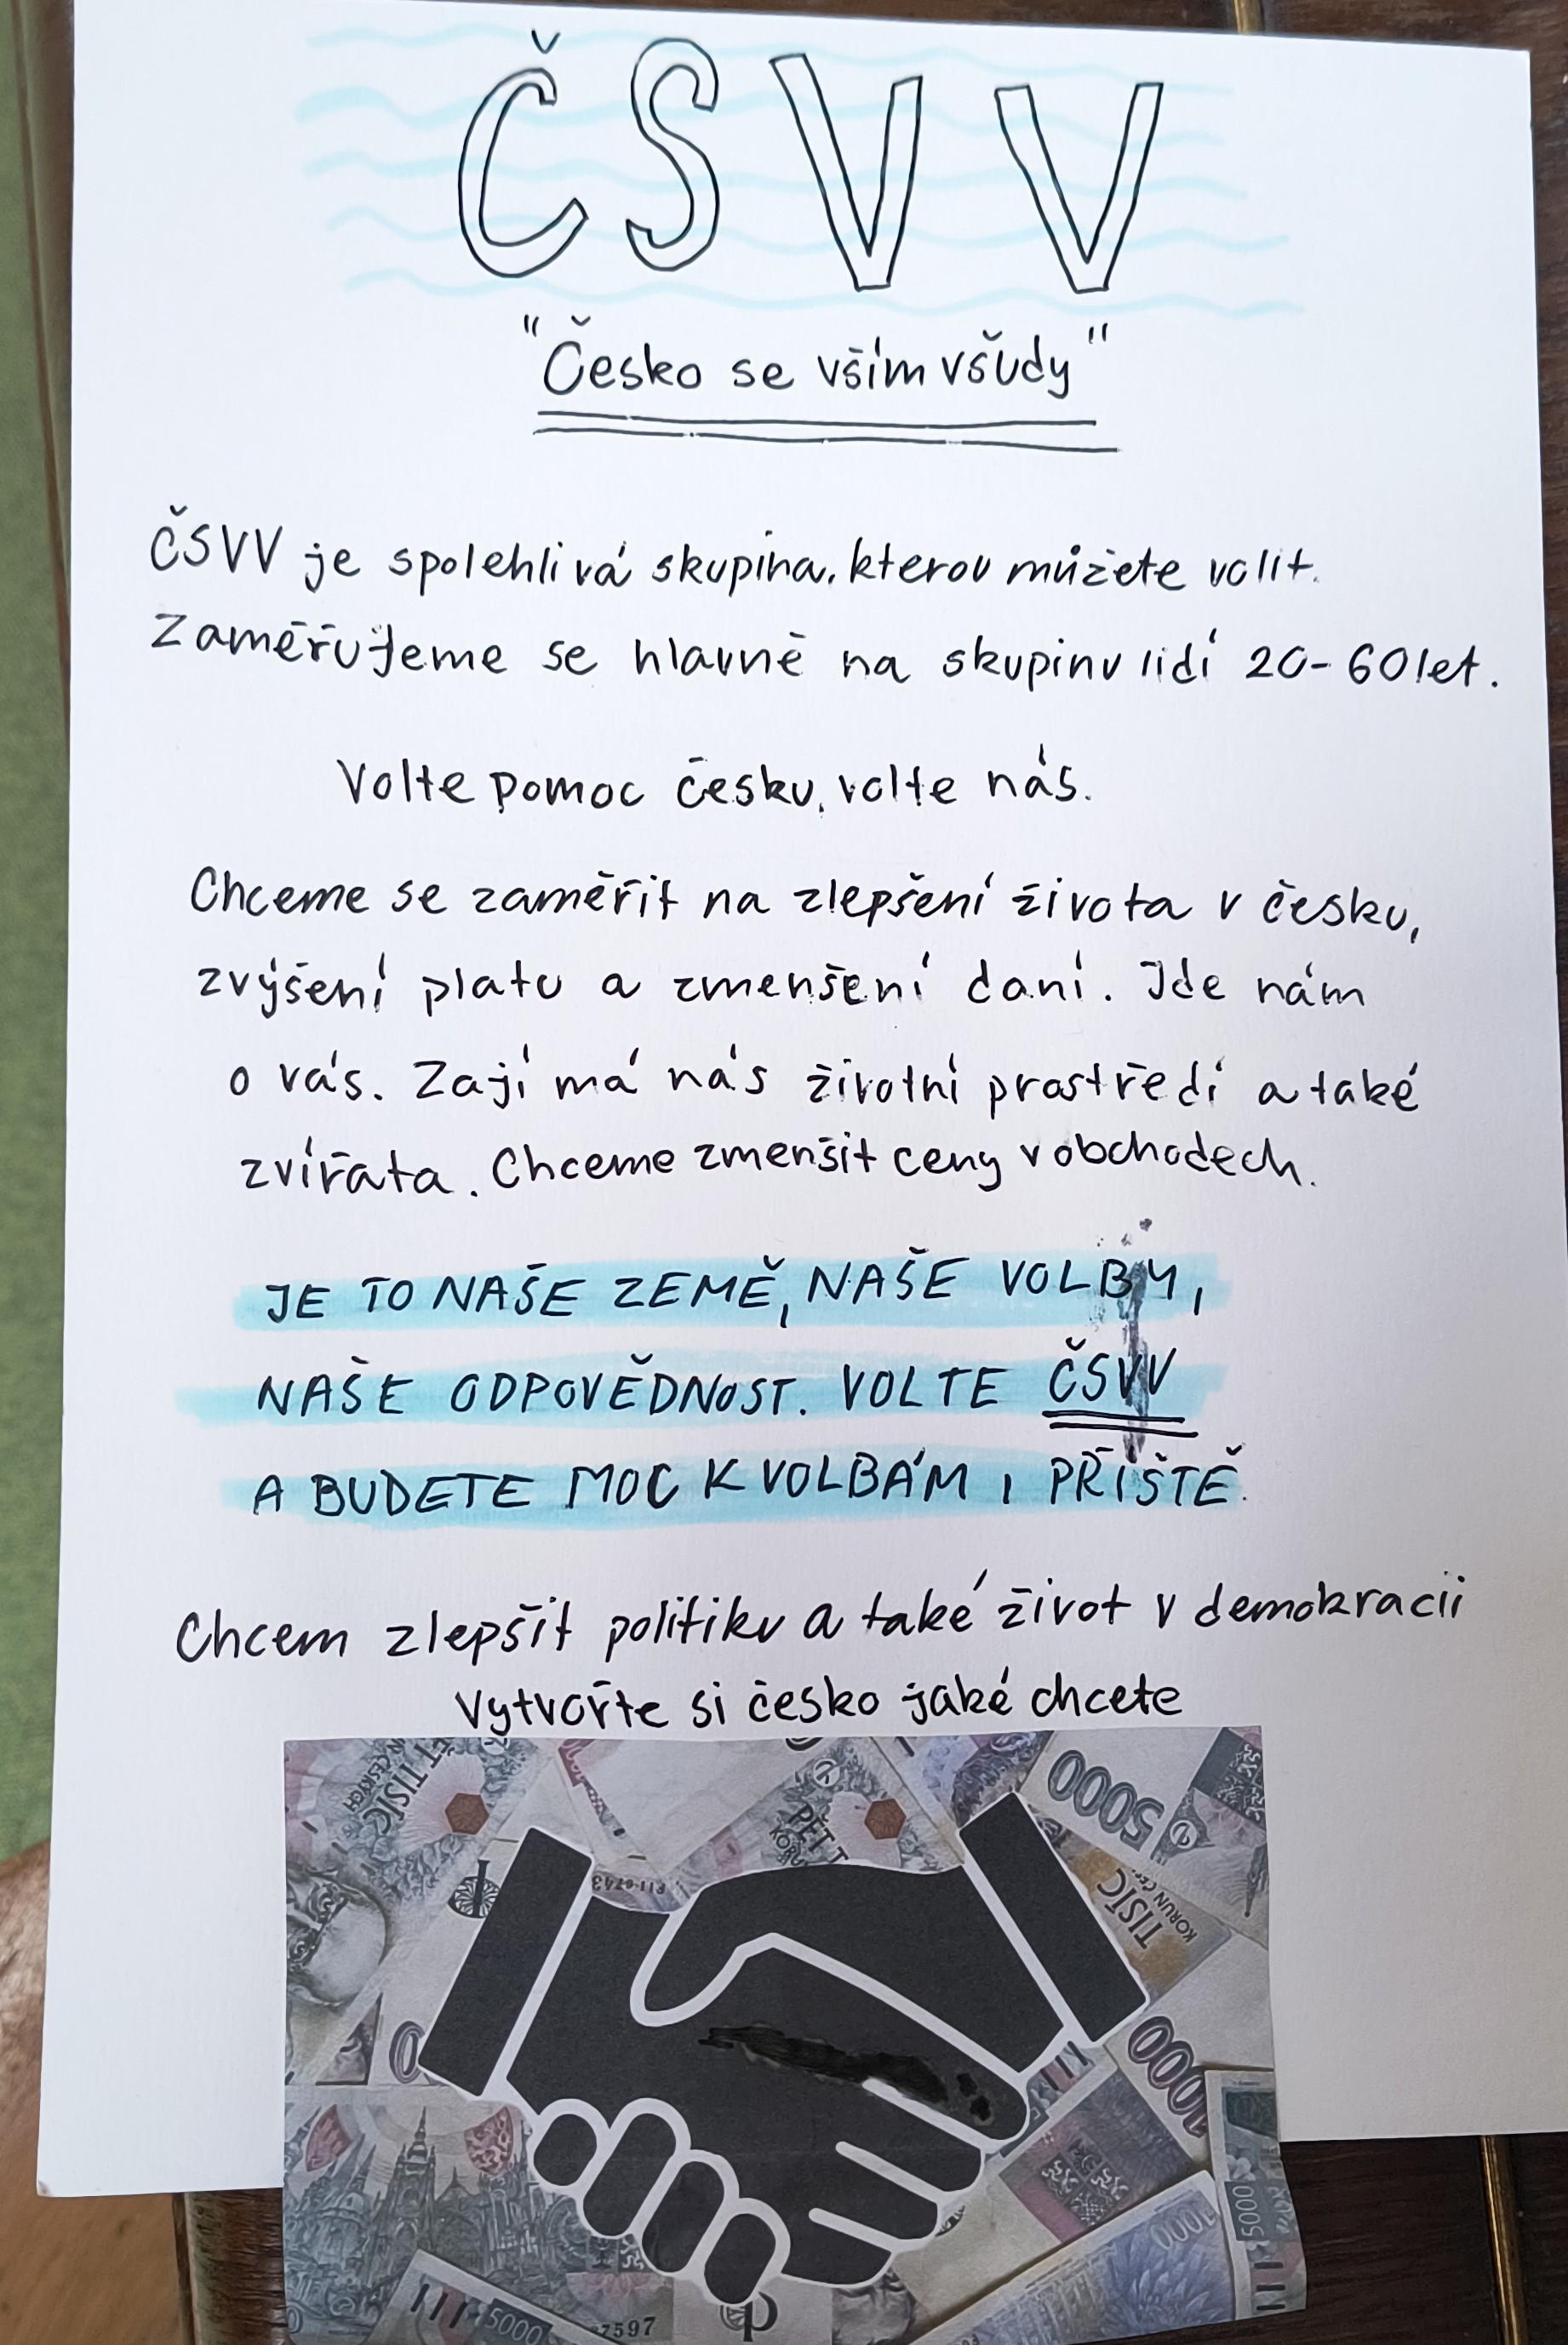 ČSVV
"Česko se vším všudy"
ČSVV je spolehlivá skupina, kterou můžete volit.
Zaměřujeme se hlavně na skupinu lidí 20-60let.
Volte pomoc česku, volte nás.
Chceme se zaměřit na zlepšení života v česku,
zvýšení platu a zmenšení daní. Jde nám
o vás. Zajímá nás životní prostředí a také
zvířata. Chceme zmenšit ceny v obchodech.
JE TO NAŠE ZEMĚ, NAŠE VOLBY,
NAŠE ODPOVĚDNOST. VOLTE ČSVV
A BUDETE MOC K VOLBÁM I PŘÍŠTĚ.
Chcem zlepšit politiku a také život v demokracii
Vytvořte si česko jaké chcete
ĚT TISÍC
N ČESKÝCH
PĚT T
KORU
5000
TISÍC
KORUN ČES
1000
5000
1000
5000
7597